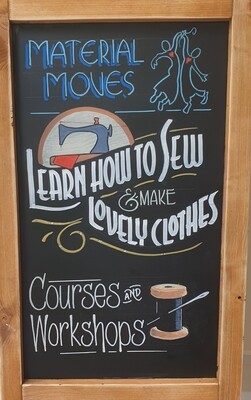 MATERIAL
MOVES
LEARN HOW TO SEW
& MAKE
LOVELY CLOTHES
COURSES AND
WORKSHOPS